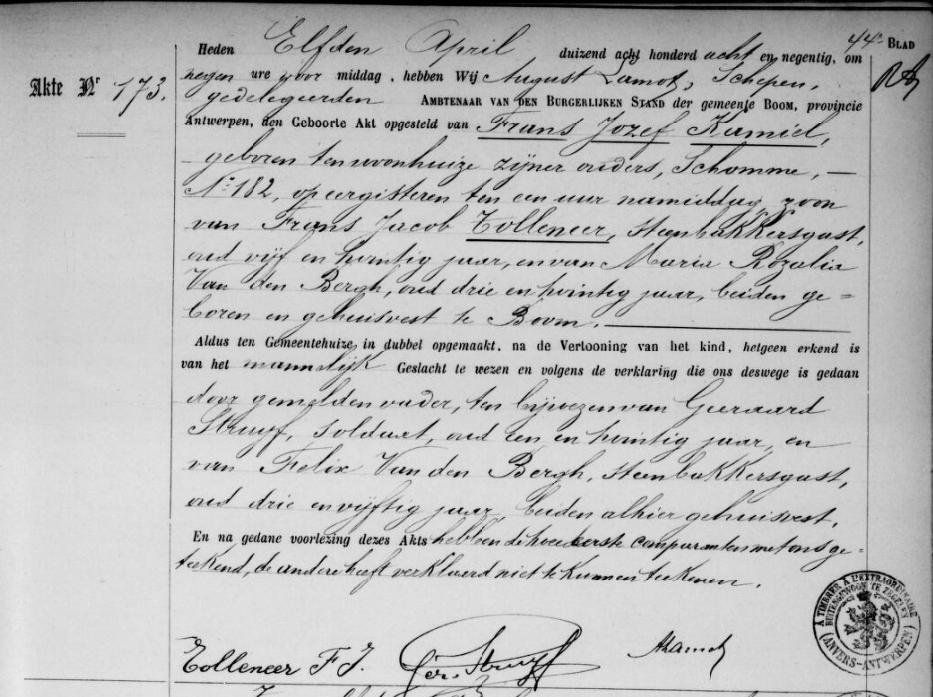 44e BLAD
Akte Nr 173.
Heden Elfden April duizend acht honderd acht en negentig, om
negen ure voor middag, hebben Wij August Lamot, Schepen,
gedelegeerden AMBTENAAR VAN DEN BURGERLIJKEN STAND der gemeente BOOM, provincie
Antwerpen, den Geboorte Akt opgesteld van Frans Jozef Kamiel,
geboren ten woonhuize zijner ouders, Schomme, —
No 182, op eergisteren ten een uur namiddag, zoon
van Frans Jacob Tolleneer, steenbakkersgast,
oud vijf en twintig jaar, en van Maria Rozalia
Van den Bergh, oud drie en twintig jaar, beiden ge=
boren en gehuisvest te Boom.
Aldus ten Gemeentehuize in dubbel opgemaakt, na de Vertooning van het kind, hetgeen erkend is
van het mannelijk Geslacht te wezen en volgens de verklaring die ons deswege is gedaan
door gemelden vader, ten bijwezen van Geeraard
Struyf, soldaat, oud een en twintig jaar, en
van Felix Van den Bergh, steenbakkersgast,
oud drie en vijftig jaar, beiden alhier gehuisvest.
En na gedane voorlezing dezes Akts hebben de twee eerste comparanten met ons ge=
teekend, de andere heeft verklaard niet te kunnen teekenen.
Tolleneer F J. Ger. Struyf ALamot
TIMBRE A L'EXTRAORDINAIRE
BUITENGEWOON TE ZEGELEN
(ANVERS-ANTWERPEN)